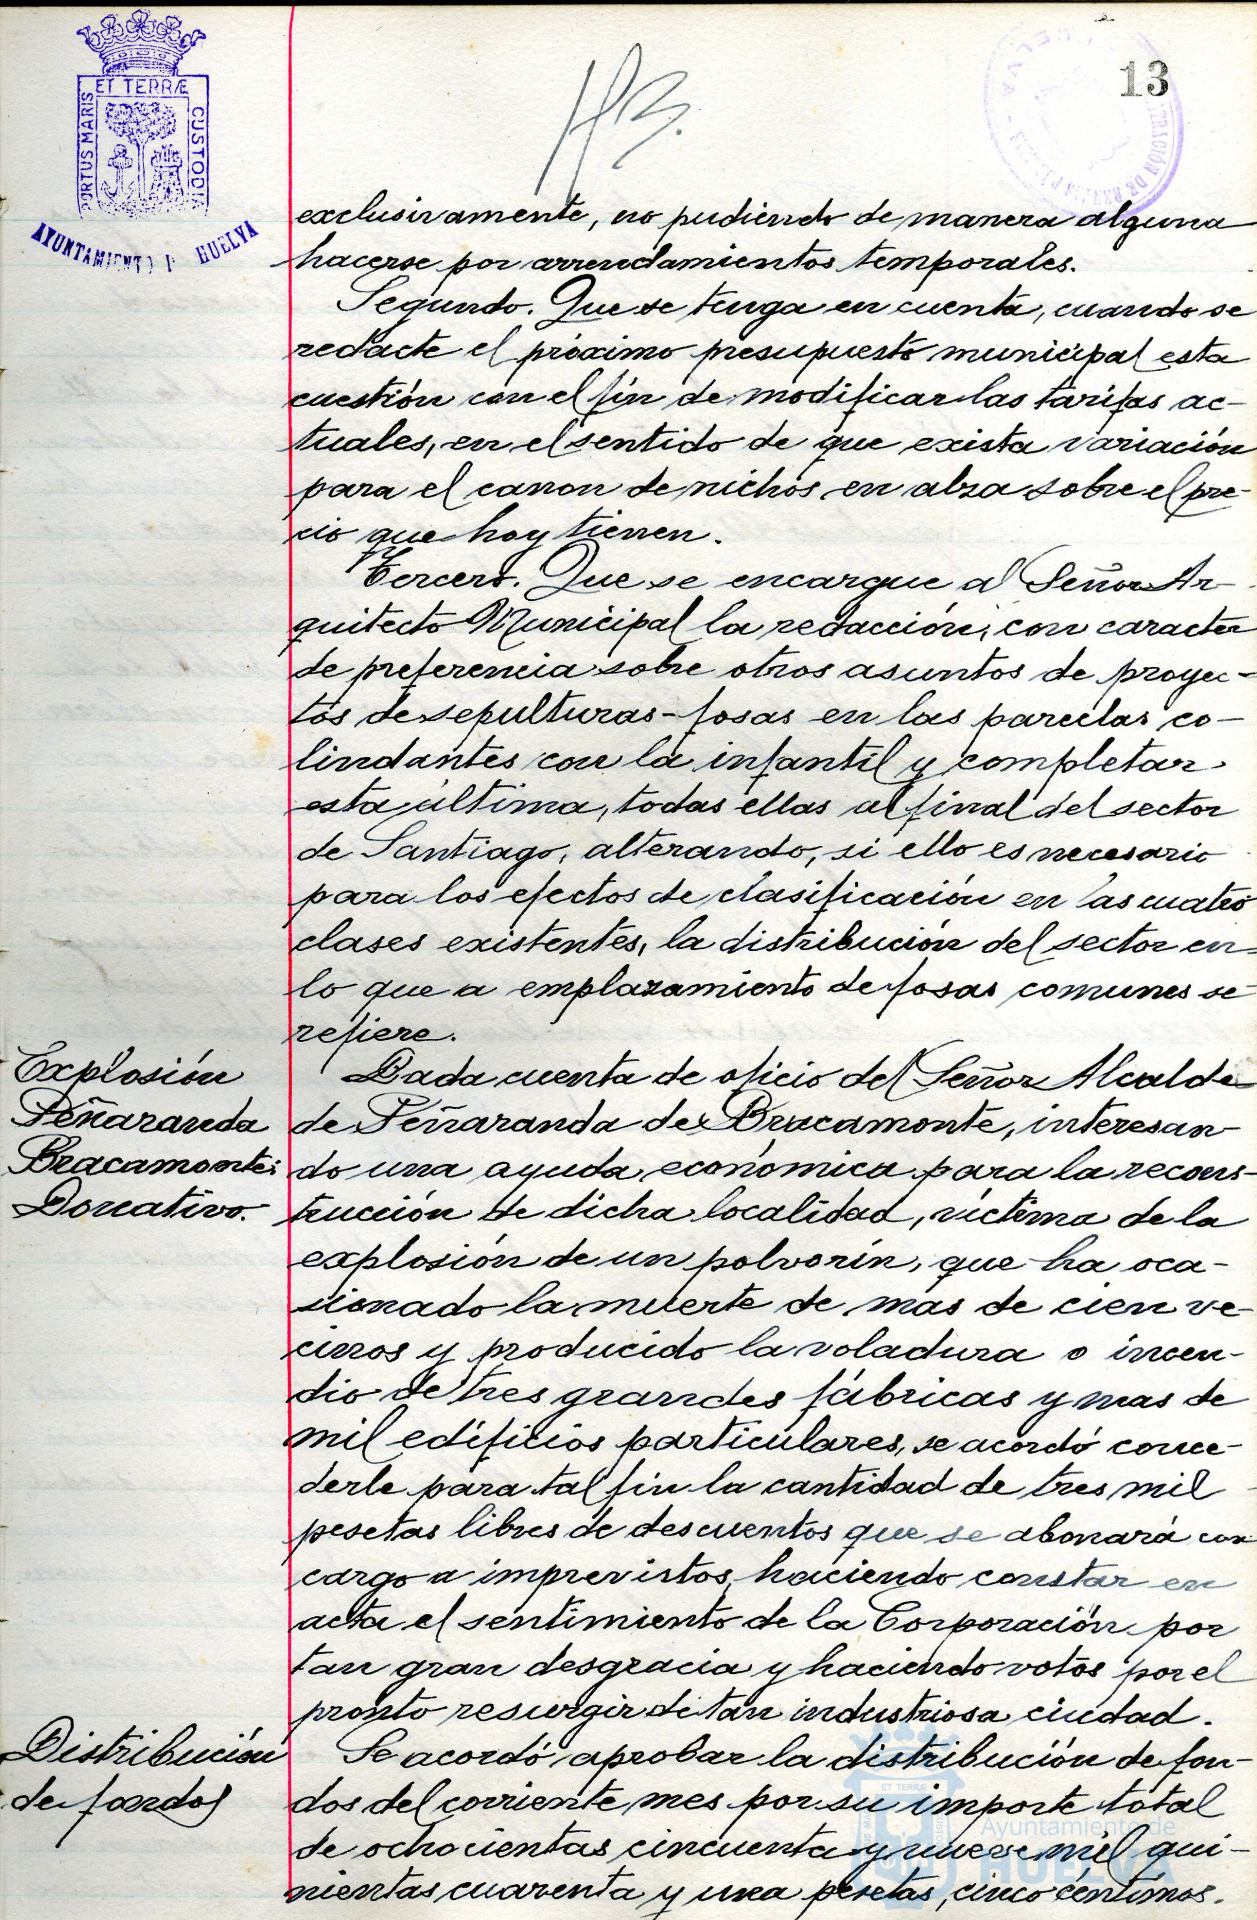 13
PORTUS MARIS ET TERRÆ CUSTODIA
AYUNTAMIENTO HUELVA
exclusivamente, no pudiendo de manera alguna
hacerse por arrendamientos temporales.
Segundo. Que se tenga en cuenta, cuando se
redacte el próximo presupuesto municipal esta
cuestión con el fin de modificar las tarifas ac-
tuales, en el sentido de que exista variación
para el canon de nichos en alza sobre el pre-
cio que hoy tienen.
Tercero. Que se encargue al Señor Ar-
quitecto Municipal la redacción, con caracter
de preferencia sobre otros asuntos de proyec-
tos de sepulturas-fosas en las parcelas co-
lindantes con la infantil y completar
esta última, todas ellas al final del sector
de Santiago, alterando, si ello es necesario
para los efectos de clasificación en las cuatro
clases existentes, la distribución del sector en
lo que a emplazamiento de fosas comunes se
refiere.
Explosión
Peñaranda
Bracamonte:
Donativo.
Dada cuenta de oficio del Señor Alcalde
de Peñaranda de Bracamonte, interesan-
do una ayuda económica para la recons-
trucción de dicha localidad, víctima de la
explosión de un polvorín, que ha oca-
sionado la muerte de mas de cien ve-
cinos y producido la voladura o incen-
dio de tres grandes fábricas y mas de
mil edificios particulares, se acordó conce-
derle para tal fin la cantidad de tres mil
pesetas libres de descuentos que se abonará con
cargo a imprevistos, haciendo constar en
acta el sentimiento de la Corporación por
tan gran desgracia y haciendo votos por el
pronto resurgir de tan industriosa ciudad.
Distribución
de fondos
Se acordó aprobar la distribución de fon-
dos del corriente mes por su importe total
de ochocientas cincuenta y nueve mil qui-
nientas cuarenta y una pesetas, cinco céntimos.
Ayuntamiento de
HUELVA